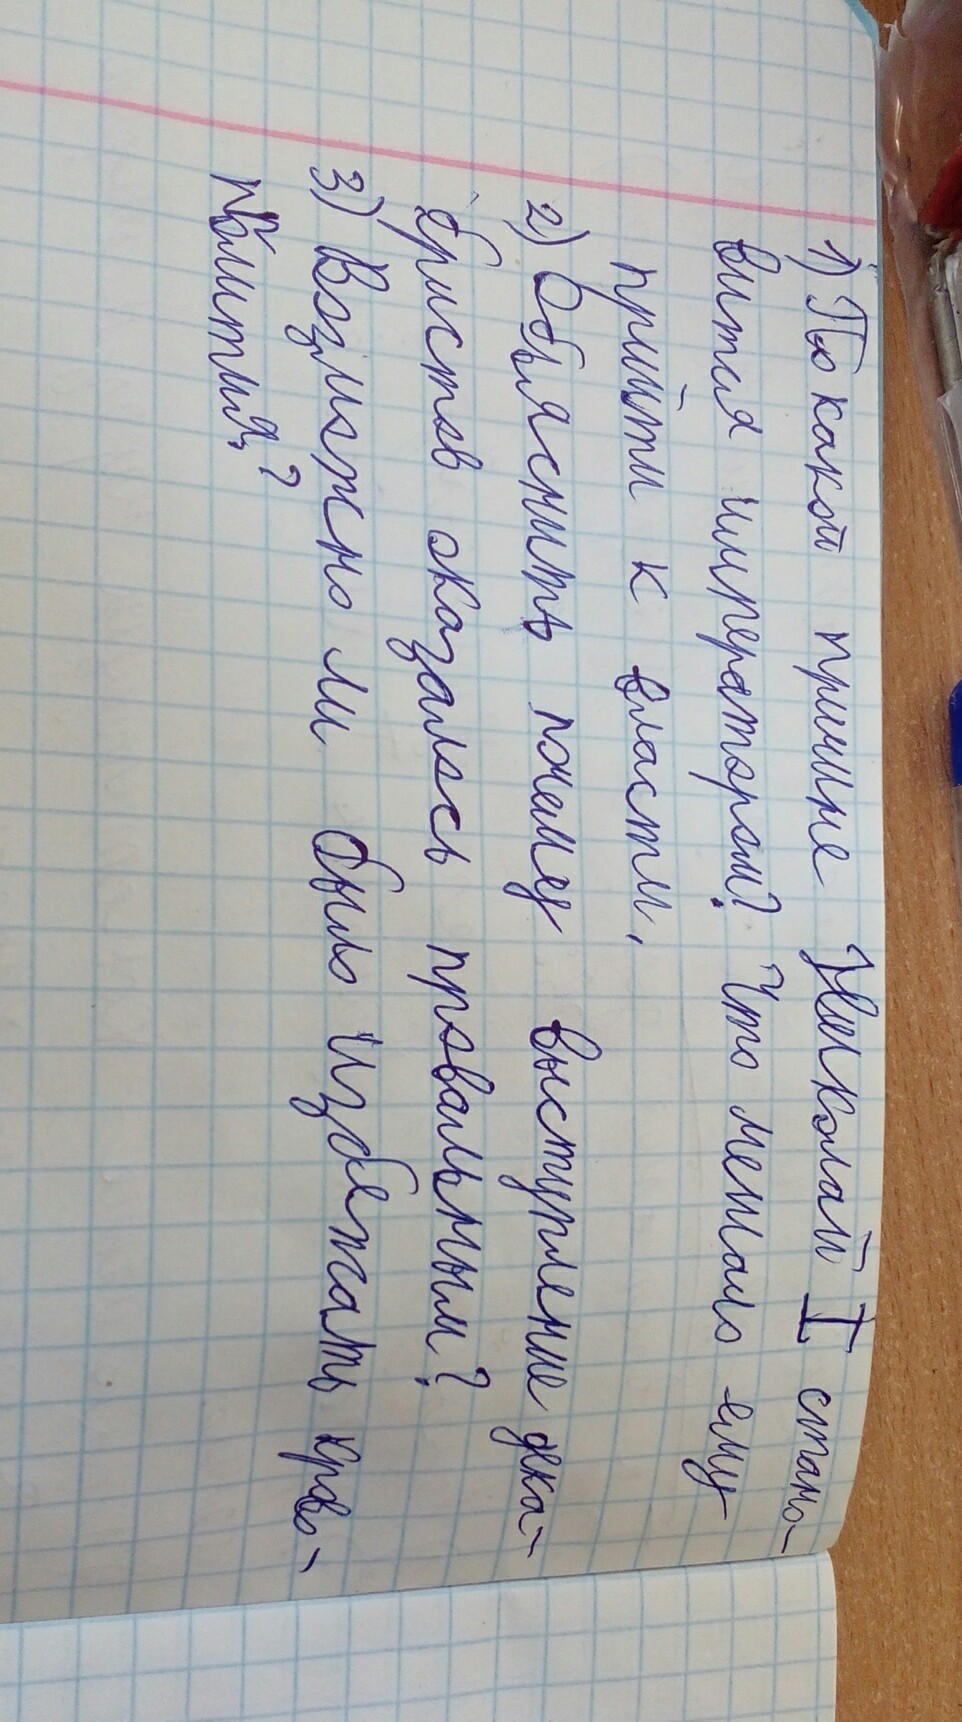 1) По какой причине Николай I стано-
вится императором? Что мешало ему
прийти к власти,
2) Объяснить почему выступление дека-
бристов оказалось провальным?
3) Возможно ли было избежать крово-
пролития?